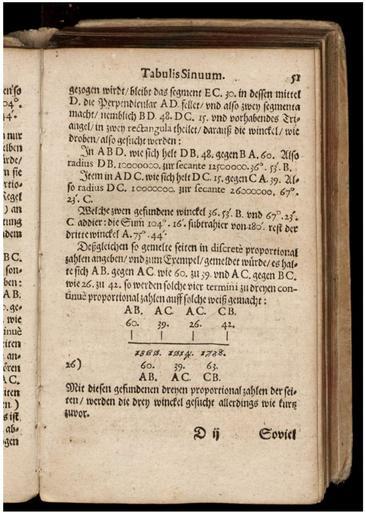 Tabulis Sinuum. 51
gezogen wirdt / bleibt das segment EC. 30. in dessen mittel
D. die Perpendicular AD. fellet / vnd also zwey segmenta
macht / nemblich BD. 48. DC. 15. vnd vorhabendes Tri-
angel / in zwey rectangula theilet / darauß die winckel / wie
droben / also gesucht werden :
In ABD. wie sich helt DB. 48. gegen BA. 60. Also
radius DB. 10000000. zur secante 12500000. 36°. 53′. B.
Item in ADC. wie sich helt DC. 15. gegen CA. 39. Al-
so radius DC. 10000000. zur secante 26000000. 67°.
23′. C.
Welche zwen gefundene winckel 36. 53′. B. vnd 67°. 23′.
C addier : die Sum 104°. 16′. subtrahier von 180. rest der
dritte winckel A. 75°. 44′
Deßgleichen so gemelte seiten in discretè proportional
zahlen angeben / vnd zum Exempel / gemeldet würde / es hal-
te sich AB. gegen AC. wie 60. zu 39. vnd AC. gegen BC.
wie 26. zu 42. so werden solche vier termini zu dreyen con-
tinuè proportional zahlen auff solche weiß gemacht :
AB. AC. AC. CB.
60. 39. 26. 42.
1560. 1014. 1638.
26) 60. 39. 63.
AB. AC. CB.
Mit diesen gefundenen dreyen proportional zahlen der sei-
ten / werden die drey winckel gesucht allerdings wie kurtz
zuvor.
D ij Soviel